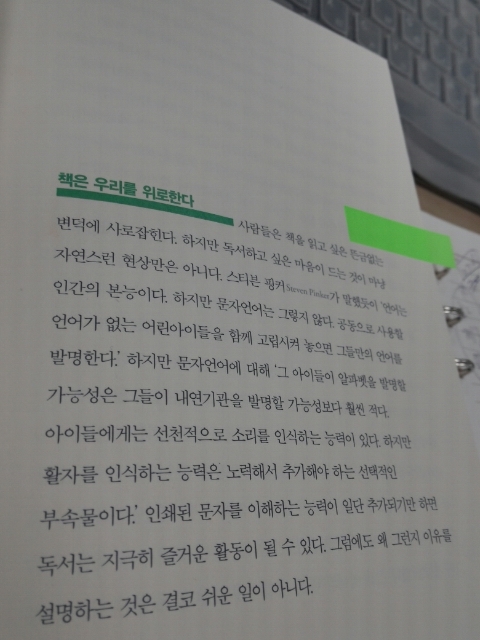 책은 우리를 위로한다
사람들은 책을 읽고 싶은 뜬금없는
변덕에 사로잡힌다. 하지만 독서하고 싶은 마음이 드는 것이 마냥
자연스런 현상만은 아니다. 스티븐 핑커Steven Pinker가 말했듯이 '언어는
인간의 본능이다. 하지만 문자언어는 그렇지 않다. 공동으로 사용할
언어가 없는 어린아이들을 함께 고립시켜 놓으면 그들만의 언어를
발명한다.' 하지만 문자언어에 대해 '그 아이들이 알파벳을 발명할
가능성은 그들이 내연기관을 발명할 가능성보다 훨씬 적다.
아이들에게는 선천적으로 소리를 인식하는 능력이 있다. 하지만
활자를 인식하는 능력은 노력해서 추가해야 하는 선택적인
부속물이다.' 인쇄된 문자를 이해하는 능력이 일단 추가되기만 하면
독서는 지극히 즐거운 활동이 될 수 있다. 그럼에도 왜 그런지 이유를
설명하는 것은 결코 쉬운 일이 아니다.